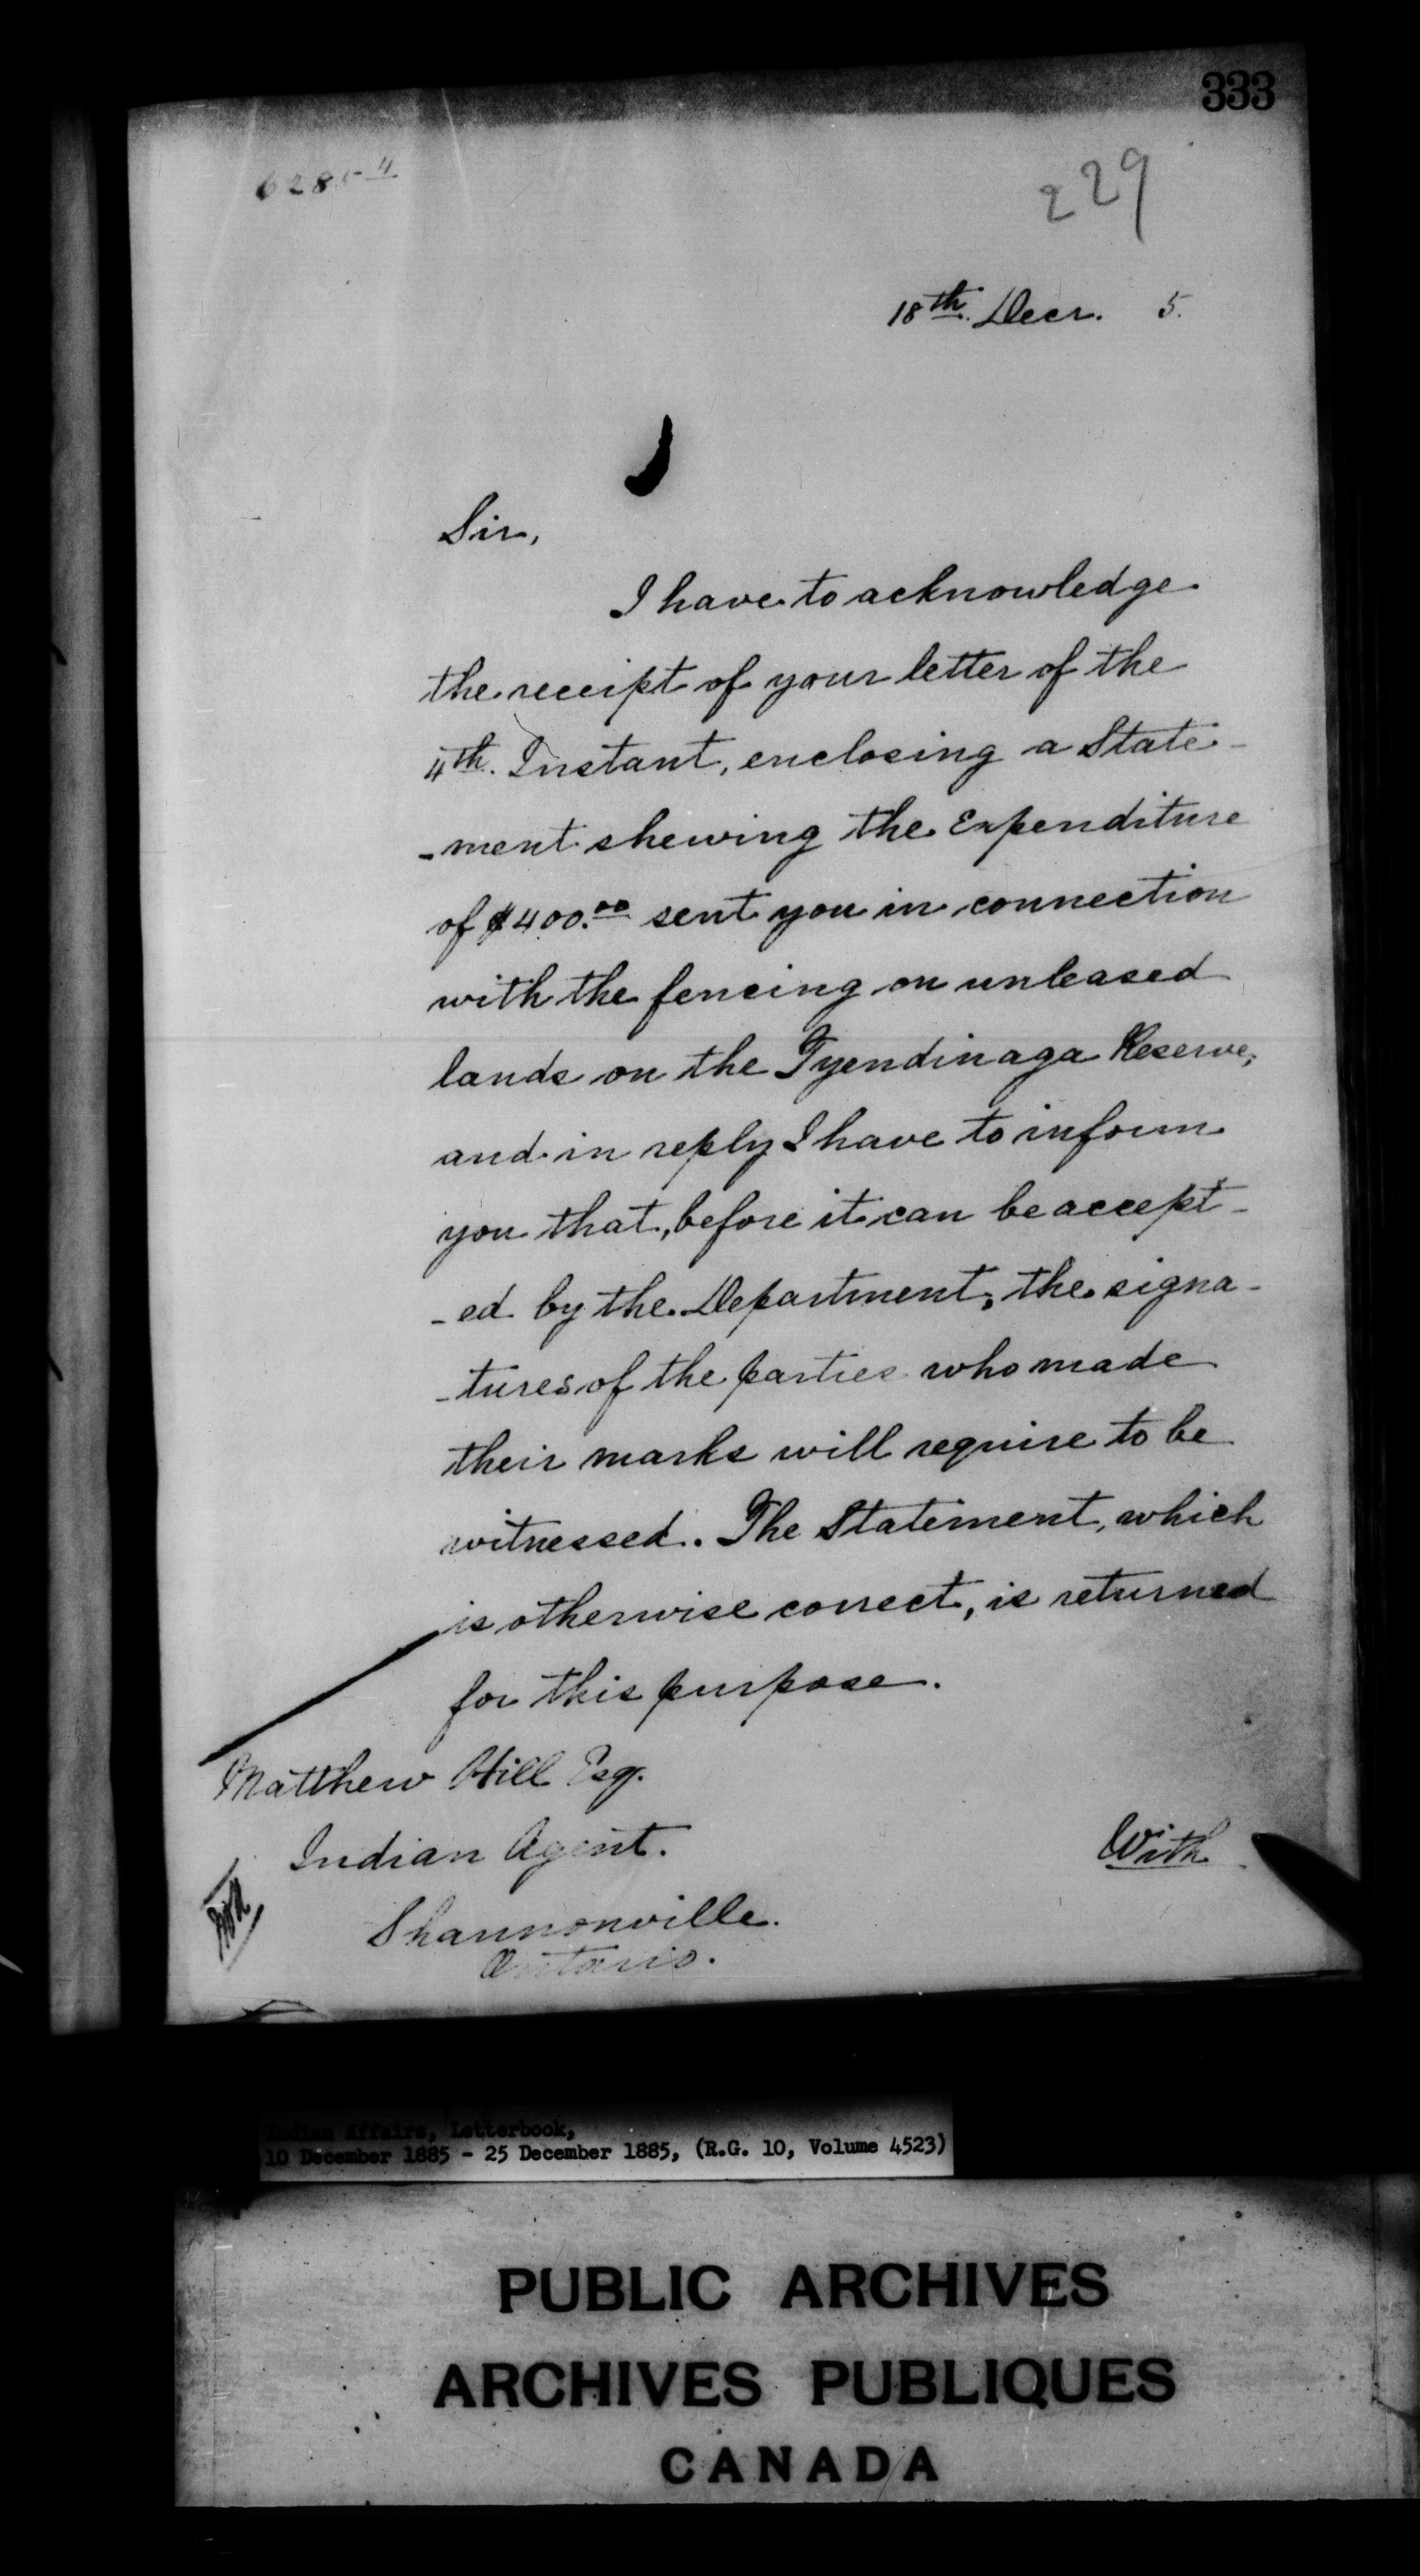 333
6285 4
229
18th. Decr. 5.
Sir,
I have to acknowledge
the receipt of your letter of the
4th. Instant, enclosing a State-
-ment shewing the Expenditure
of $400.00 sent you in connection
with the fencing on unleased
lands on the Tyendinaga Reserve,
and in reply I have to inform
you that, before it can be accept-
-ed by the Department, the signa-
-tures of the parties who made
their marks will require to be
witnessed. The Statement, which
is otherwise correct, is returned
for this purpose.
Matthew Hill Esq.
Indian Agent.
With
Shannonville.
Ontario.
Indian Affairs, Letterbook,
10 December 1885 - 25 December 1885, (R.G. 10, Volume 4523)
PUBLIC ARCHIVES
ARCHIVES PUBLIQUES
CANADA